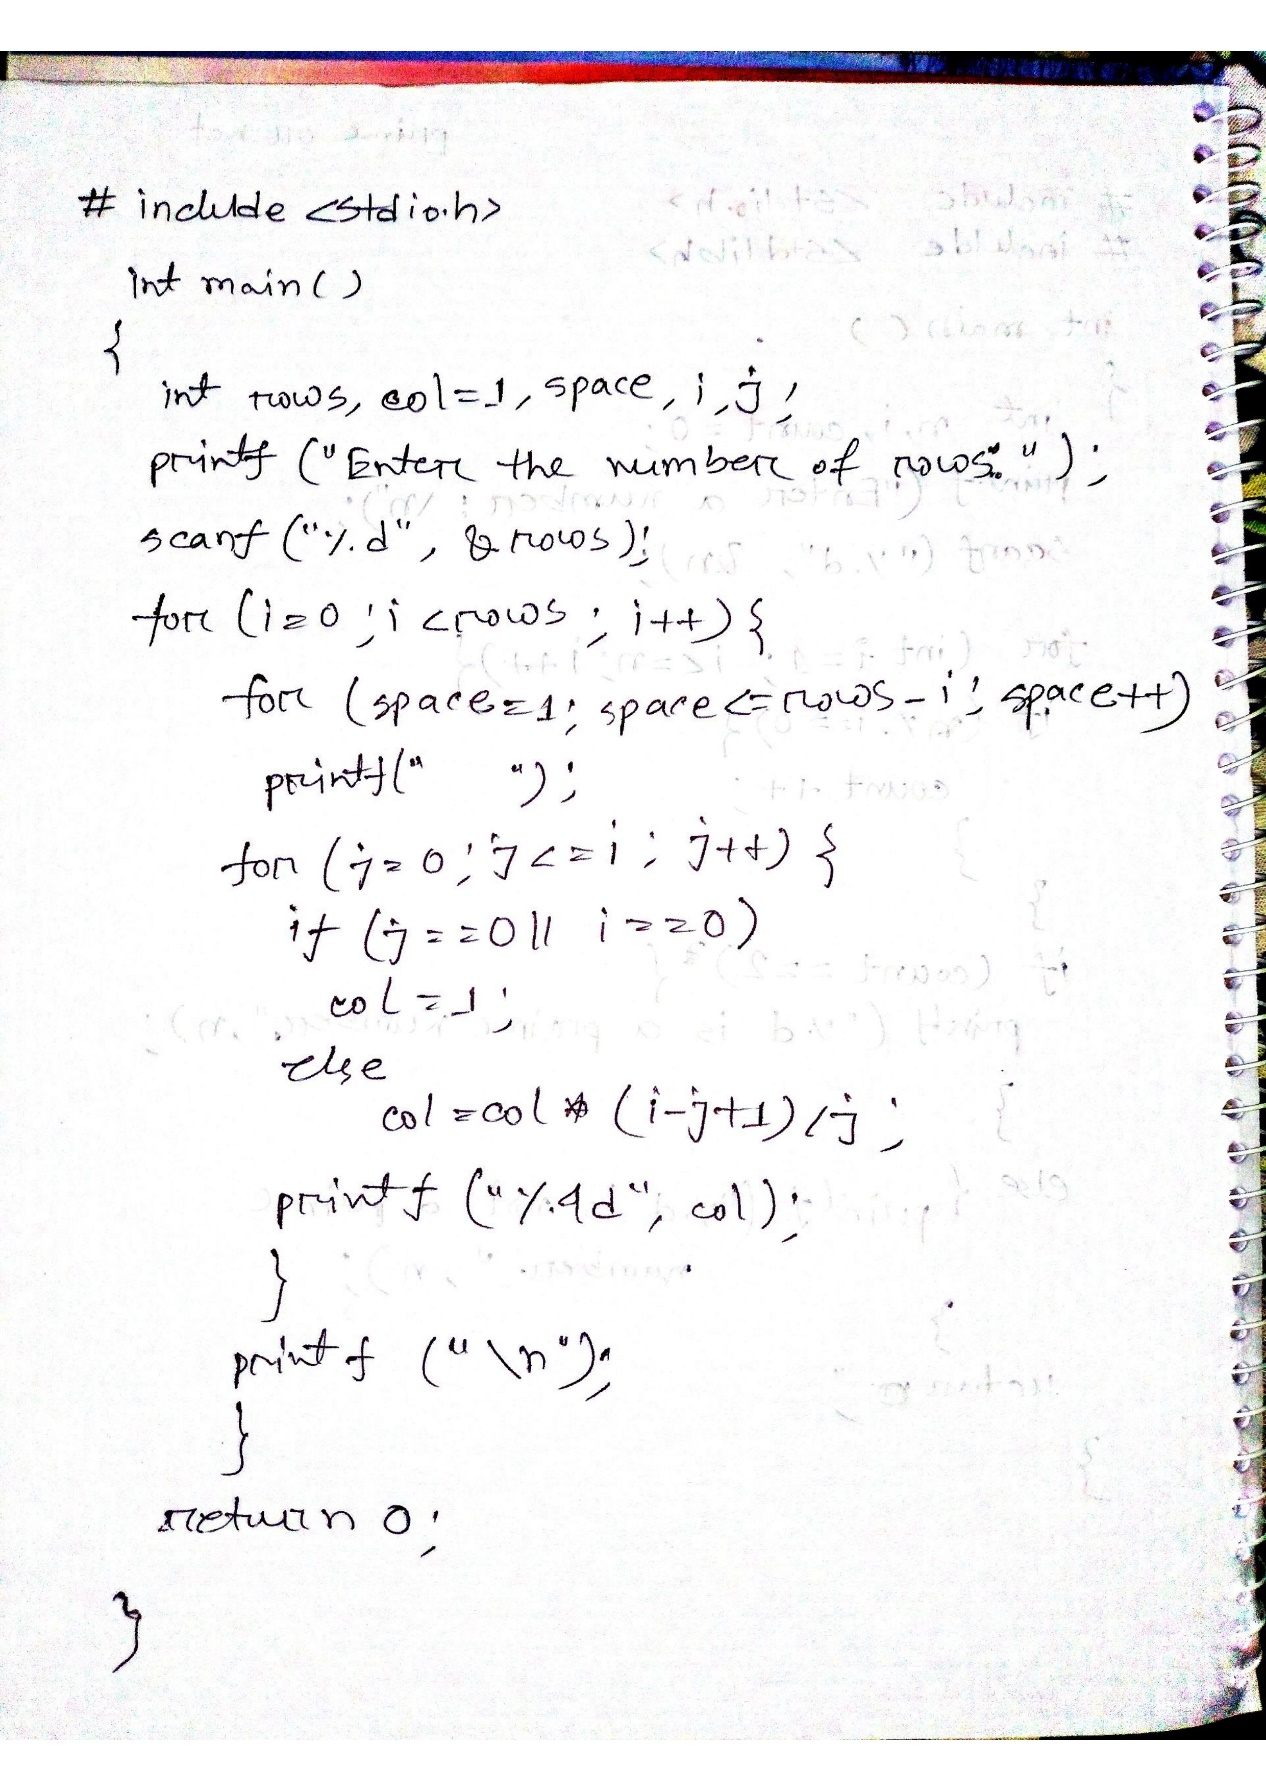 # include <stdio.h>
int main()
{
int rows, col=1, space, i, j;
printf ("Enter the number of rows: ");
scanf ("%d", & rows);
for (i=0; i <rows; i++) {
for (space=1; space<=rows-i; space++)
printf("  ");
for (j=0; j<=i; j++) {
if (j==0 || i==0)
col=1;
else
col=col * (i-j+1)/j;
printf ("%4d", col);
}
printf ("\n");
}
return 0;
}